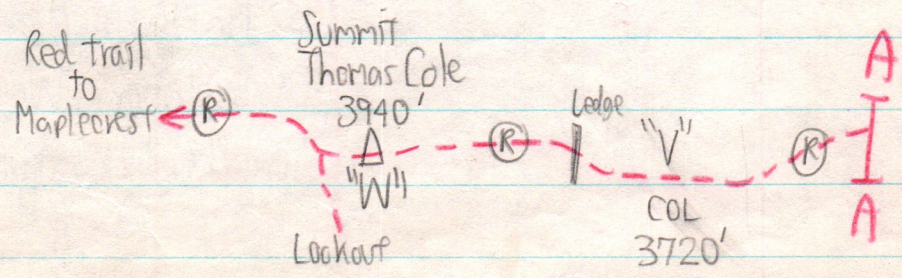 Red trail
to
Maplecrest
R
Summit
Thomas Cole
3940'
"W"
Lookout
R
Ledge
"V"
COL
3720'
R
A
A